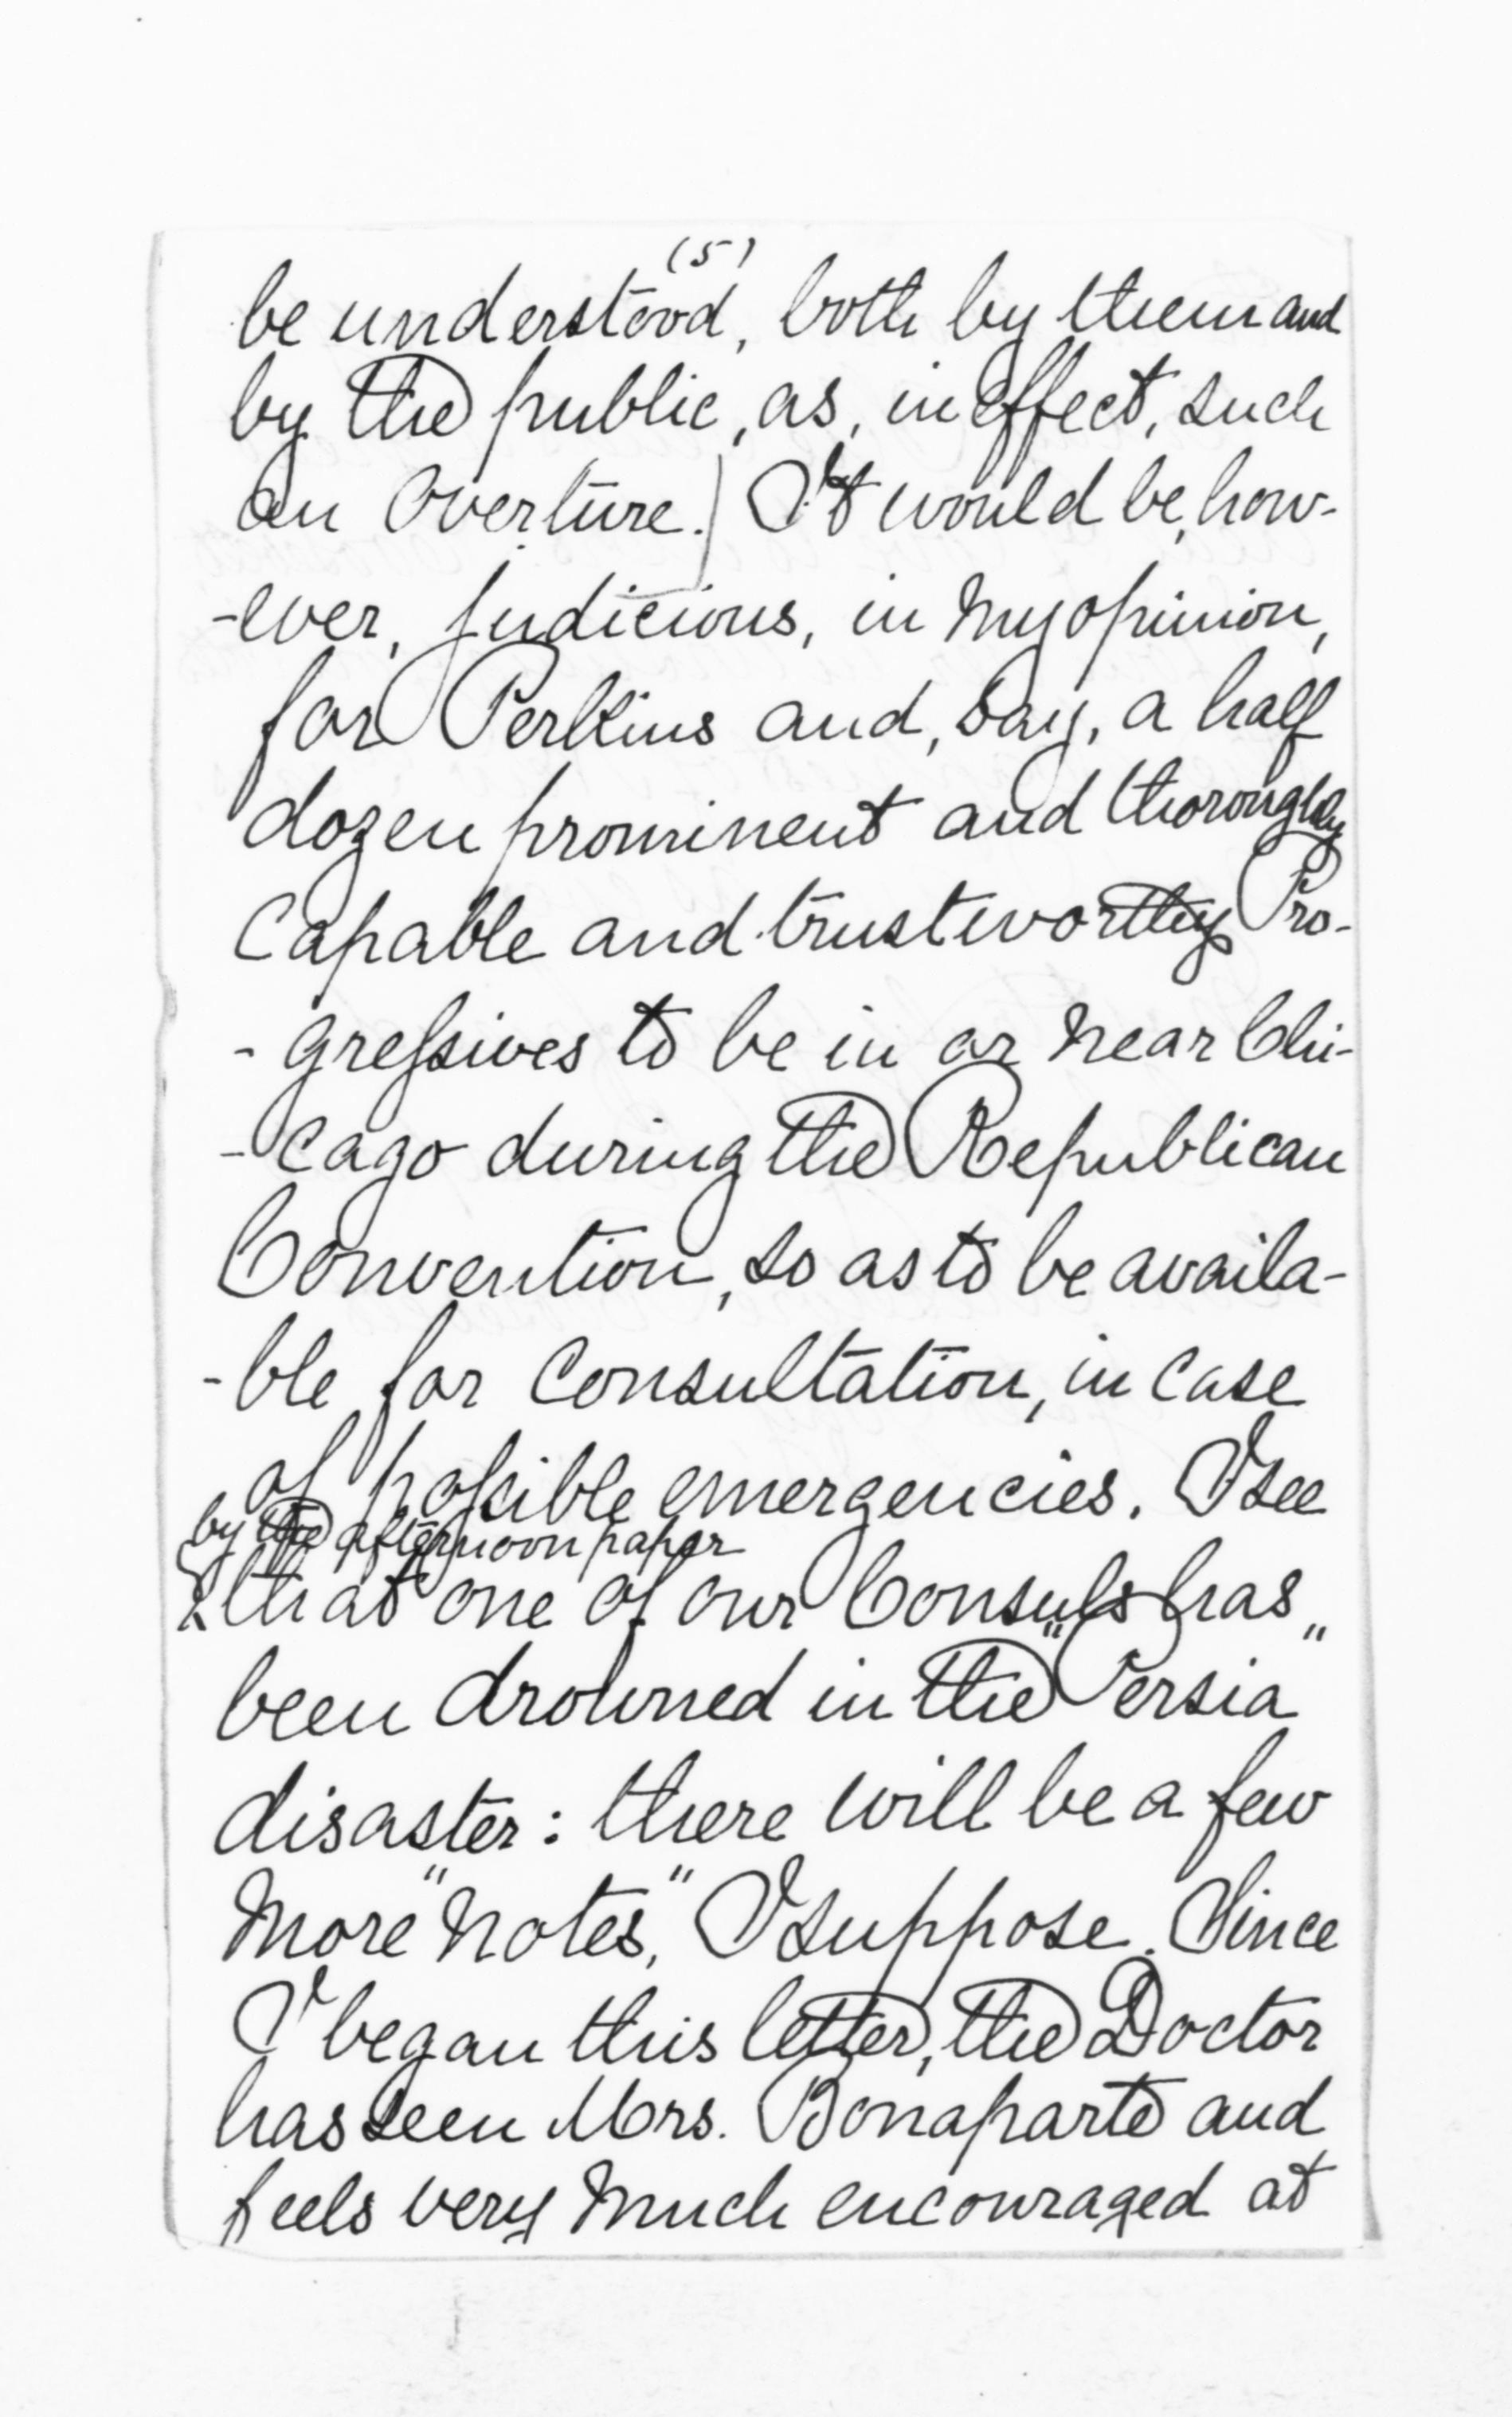 (5)
be understood, both by them and
by the public, as, in effect, such
an overture.) It would be, how-
-ever, judicious, in my opinion,
for Perkins and, say, a half
dozen prominent and thoroughly
capable and trustworthy Pro-
-gressives to be in or near Chi-
-cago during the Republican
Convention, so as to be availa-
-ble for consultation, in case
of possible emergencies. I see
by the afternoon paper
that one of our Consuls has
been drowned in the "Persia"
disaster: there will be a few
more "notes," I suppose. Since
I began this letter, the Doctor
has seen Mrs. Bonaparte and
feels very much encouraged at